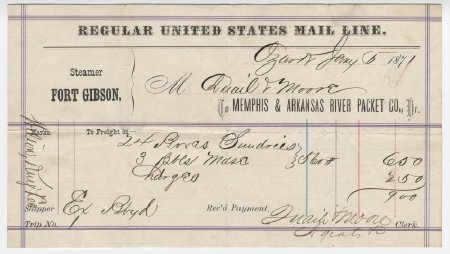 REGULAR UNITED STATES MAIL LINE.
Ozark Jany 5 1871
Steamer
FORT GIBSON.
M Quaile & Moore
To MEMPHIS & ARKANSAS RIVER PACKET CO., Dr.
Marks. To Freight on
24 Boxes Sundries
3 Bbls 6 50
Charges 2 50
9 00
Shipper Ex Boyd Rec'd Payment,
Trip No. Clerk.